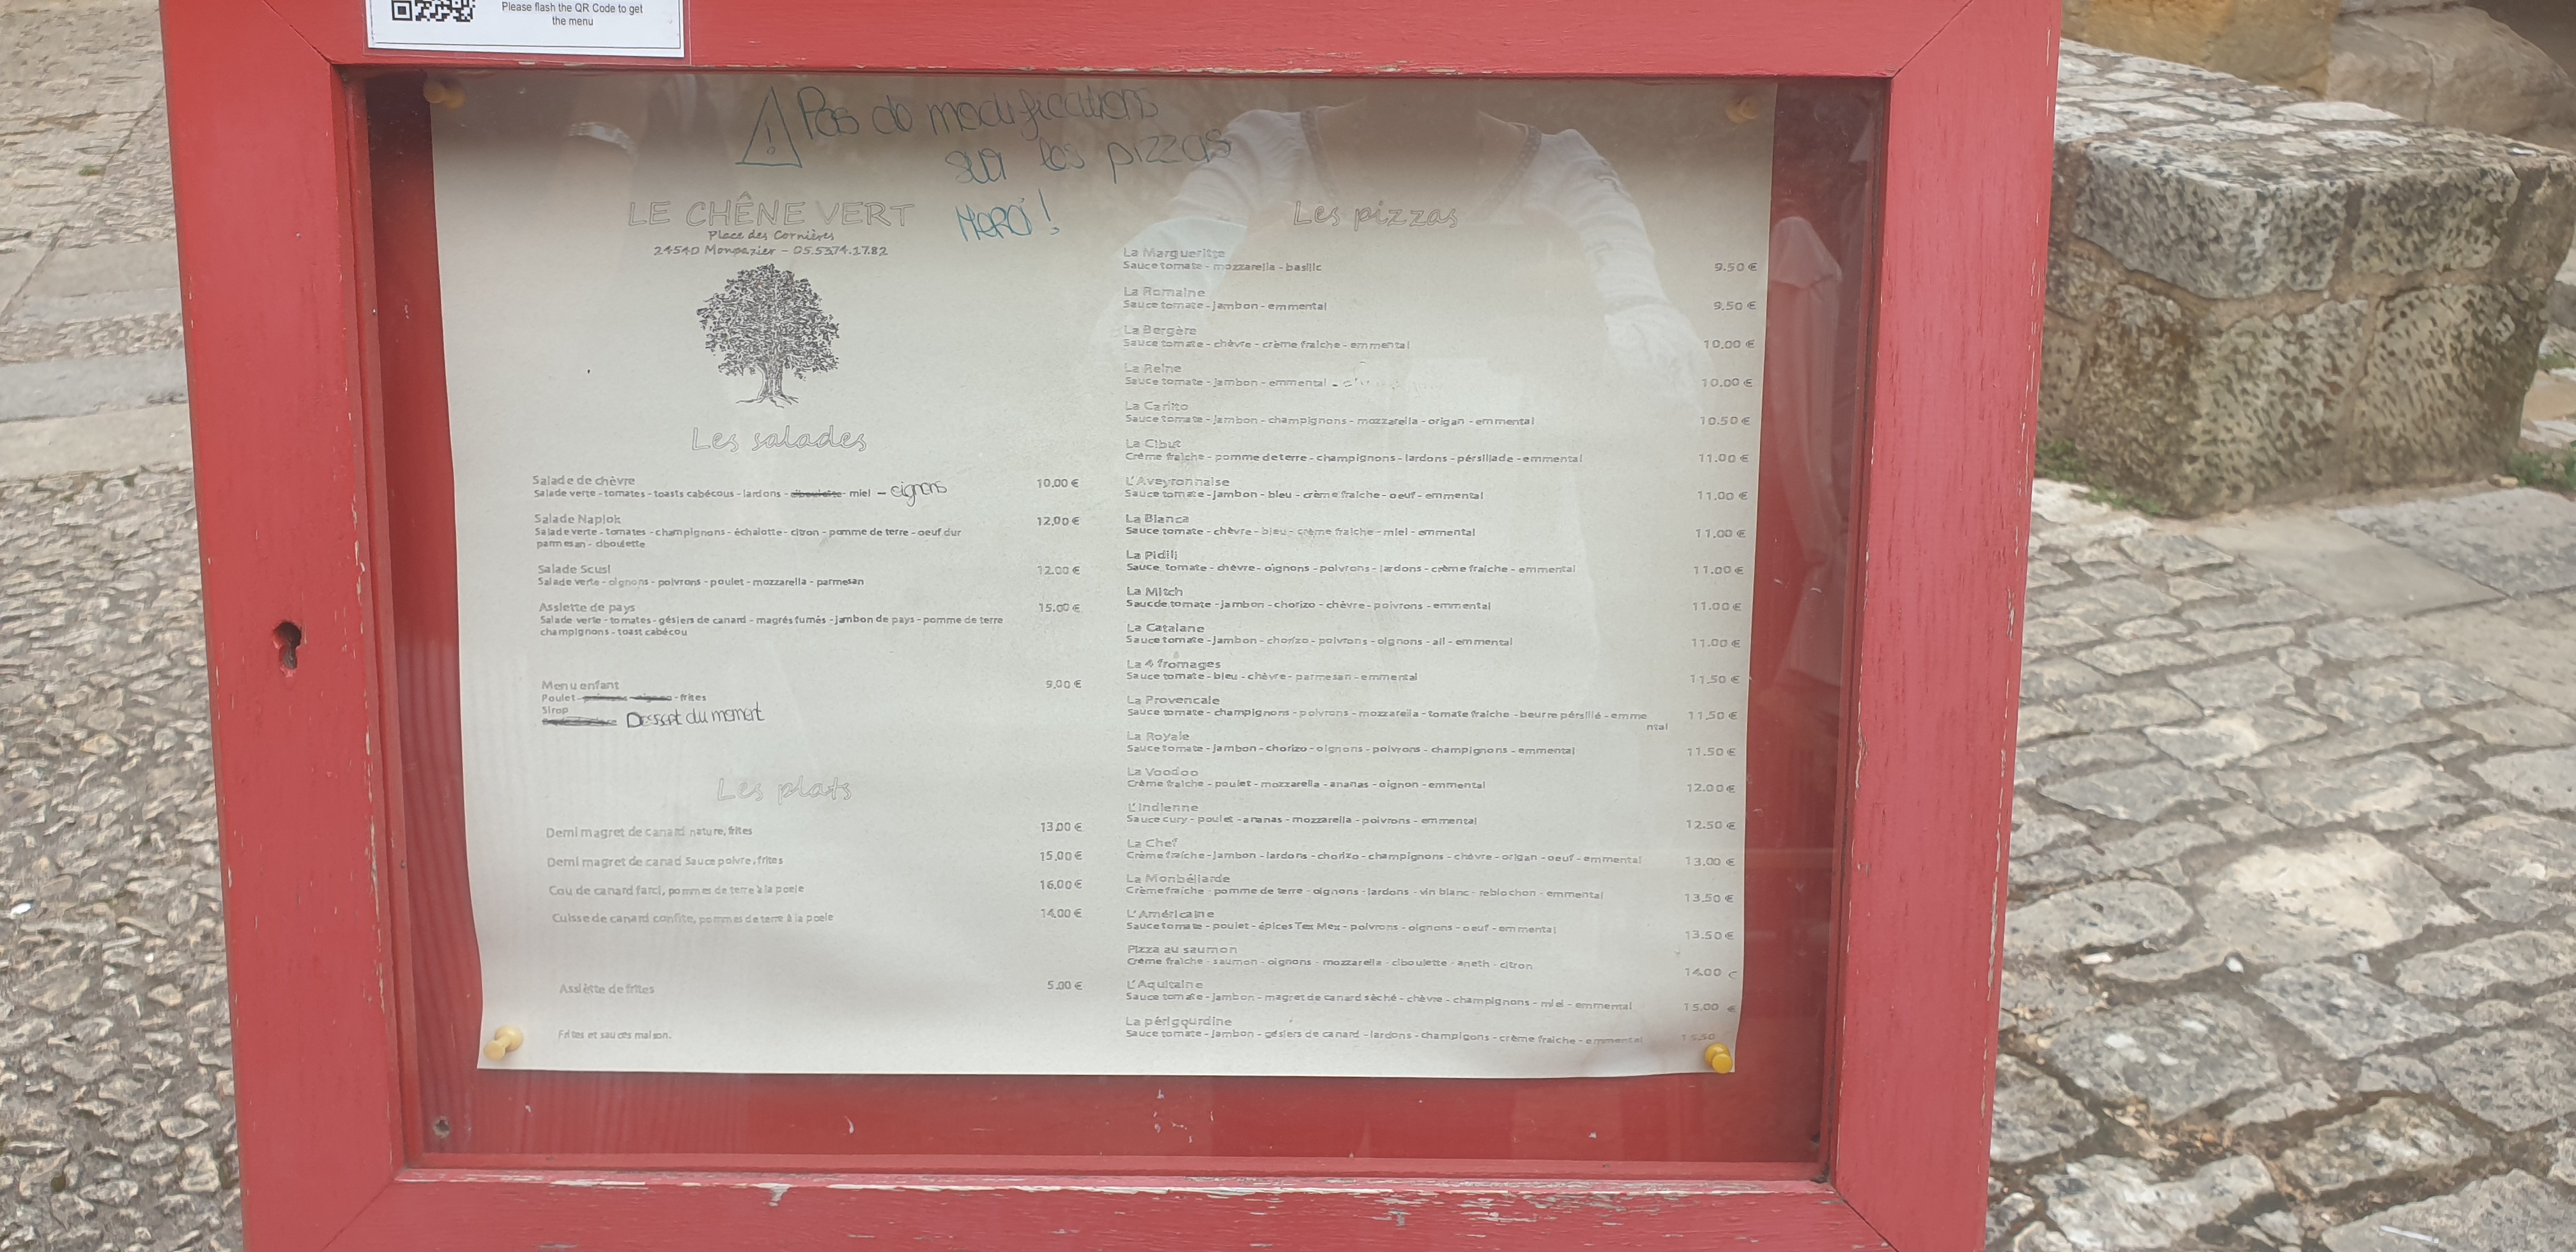 Please flash the QR Code to get
the menu
Pas de modifications
sur les pizzas
Merci !
LE CHÊNE VERT
Place des Cornières
24540 Monpazier - 05.53.74.17.82
Les salades
Salade de chèvre 10,00 €
Salade verte - tomates - toasts cabécous - lardons - ciboulette - miel - oignons
Salade Naplok 12,00 €
Salade verte - tomates - champignons - échalotte - citron - pomme de terre - oeuf dur
parmesan - ciboulette
Salade Scusi 12.00 €
Salade verte - oignons - poivrons - poulet - mozzarella - parmesan
Assiette de pays 15.00 €
Salade verte - tomates - gésiers de canard - magrés fumés - jambon de pays - pomme de terre
champignons - toast cabécou
Menu enfant 9,00 €
Poulet - - frites
Sirop
Dessert du moment
Les plats
Demi magret de canard nature, frites 13.00 €
Demi magret de canad Sauce poivre, frites 15,00 €
Cou de canard farci, pommes de terre à la poele 16.00 €
Cuisse de canard confite, pommes de terre à la poele 14.00 €
Assiètte de frites 5.00 €
Frites et sauces maison.
Les pizzas
La Margueritte
Sauce tomate - mozzarella - basilic 9.50 €
La Romaine
Sauce tomate - jambon - emmental 9.50 €
La Bergère
Sauce tomate - chèvre - crème fraîche - emmental 10,00 €
La Reine
Sauce tomate - jambon - emmental - 10.00 €
La Carlito
Sauce tomate - jambon - champignons - mozzarella - origan - emmental 10.50 €
La Cibut
Crème fraîche - pomme de terre - champignons - lardons - pérsillade - emmental 11.00 €
L'Aveyronnaise
Sauce tomate - jambon - bleu - crème fraiche - oeuf - emmental 11.00 €
La Bianca
Sauce tomate - chèvre - bleu - crème fraiche - miel - emmental 11.00 €
La Pidili
Sauce tomate - chèvre - oignons - poivrons - lardons - crème fraiche - emmental 11.00 €
La Mitch
Saucde tomate - jambon - chorizo - chèvre - poivrons - emmental 11.00 €
La Catalane
Sauce tomate - jambon - chorizo - poivrons - oignons - ail - emmental 11.00 €
La 4 fromages
Sauce tomate - bleu - chèvre - parmesan - emmental 11,50 €
La Provencale
Sauce tomate - champignons - poivrons - mozzarella - tomate fraiche - beurre pérsillé - emme 11,50 €
ntal
La Royale
Sauce tomate - jambon - chorizo - oignons - poivrons - champignons - emmental 11.50 €
La Voodoo
Crème fraîche - poulet - mozzarella - ananas - oignon - emmental 12.00 €
L'indienne
Sauce cury - poulet - ananas - mozzarella - poivrons - emmental 12.50 €
La Chef
Crème fraîche - jambon - lardons - chorizo - champignons - chèvre - origan - oeuf - emmental 13.00 €
La Monbéliarde
Crème fraîche - pomme de terre - oignons - lardons - vin blanc - reblochon - emmental 13.50 €
L'Américaine
Sauce tomate - poulet - épices Tex Mex - poivrons - oignons - oeuf - emmental 13.50 €
Pizza au saumon
Crème fraîche - saumon - oignons - mozzarella - ciboulette - aneth - citron 14.00 €
L'Aquitaine
Sauce tomate - jambon - magret de canard séché - chèvre - champignons - miel - emmental 15.00 €
La périgourdine
Sauce tomate - jambon - gésiers de canard - lardons - champigons - crème fraiche - emmental 15.50